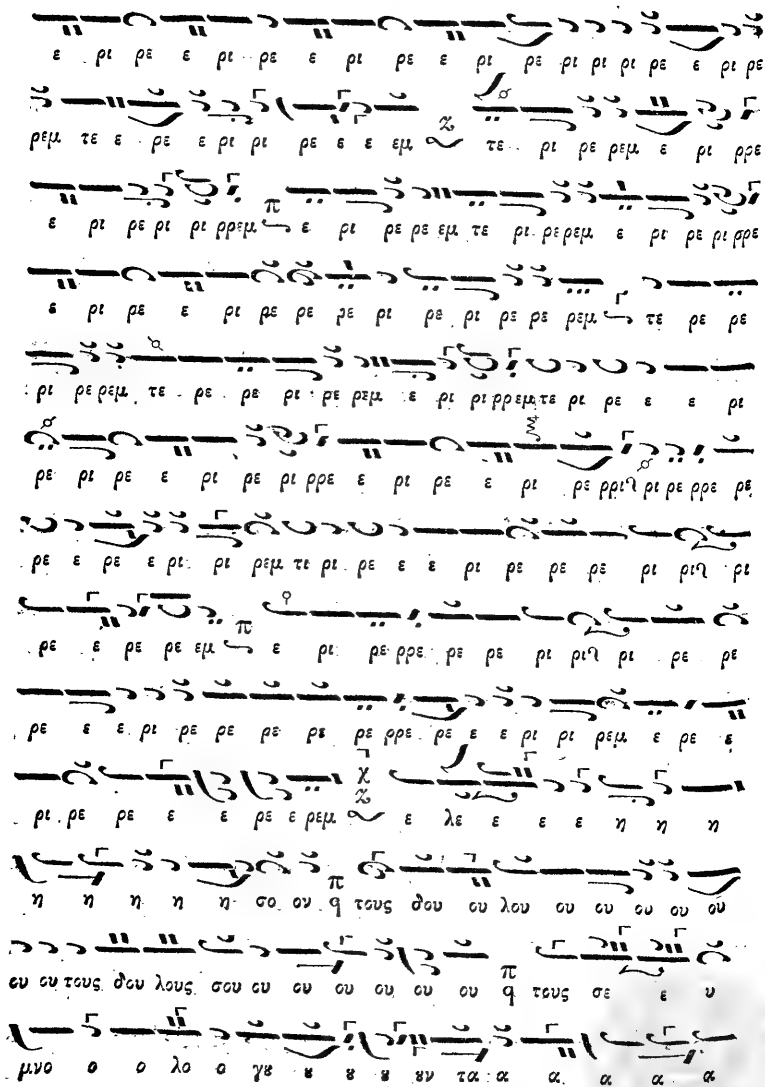 ε ρι ρε ε ρι ρε ε ρι ρε ε ρι ρε ρι ρι ρι ρε ε ρι ρε
ρεμ τε ε ρε ε ρι ρι ρε ε ε εμ τε ρι ρε ρεμ ε ρι ρρε
ε ρι ρε ρι ρι ρρεμ π ε ρι ρε ρε εμ τε ρι ρε ρεμ ε ρι ρε ρι ρρε
ε ρι ρε ε ρι ρε ρε ρε ρι ρε ρι ρε ρε ρεμ τε ρε ρε
ρι ρε ρεμ τε ρε ρε ρι ρε ρεμ ε ρι ρι ρρεμ τε ρι ρε ε ε ρι
ρε ρι ρε ε ρι ρε ρι ρρε ε ρι ρε ε ρι ρε ρρι ρι ρε ρρε ρε
ρε ε ρε ε ρι ρι ρεμ τι ρι ρε ε ε ρι ρε ρε ρε ρι ρι ρι
ρε ε ρε ρε εμ π ε ρι ρε ρρε ρε ρε ρι ρι ρι ρε ρε
ρε ε ε ρι ρε ρε ρε ρε ρε ρρε ρε ε ε ρι ρι ρεμ ε ρε ε
ρι ρε ρε ε ε ρε ε ρεμ χ ε λε ε ε ε η η η
η η η η η σο ου π q τους δου ου λου ου ου ου ου ου
ου ου τους δου λους σου ου ου ου ου ου ου ου π q τους σε ε υ
μνο ο ο λο ο γȣ ȣ ȣ ȣ ȣν τα α α α α α